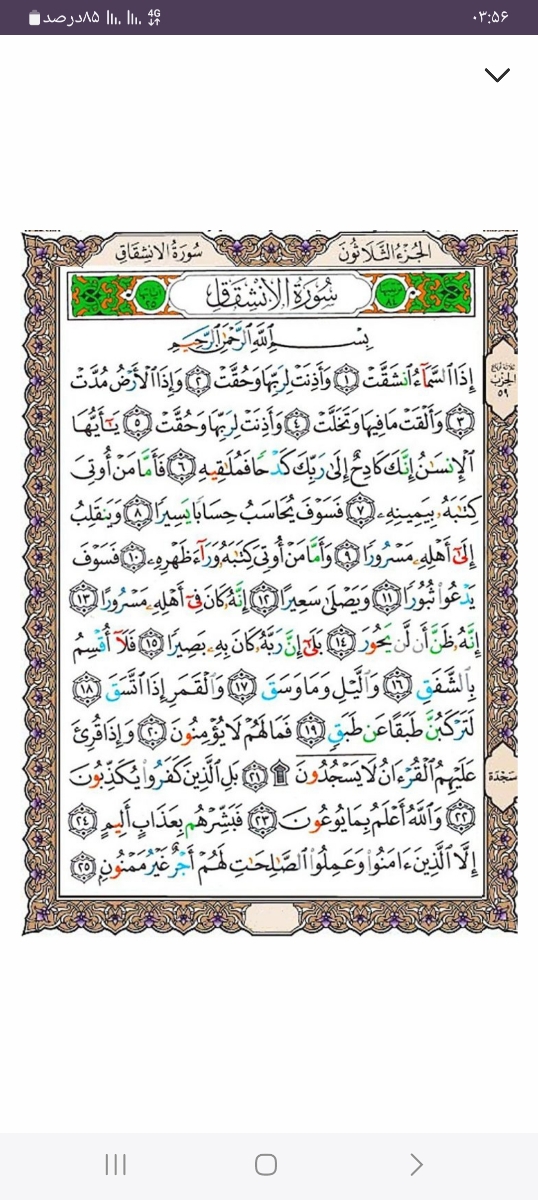 ۰۳:۵۶
4G
۸۵درصد
الجُزءُ الثَّلَاثُونَ
سُورَةُ الانشِقَاقِ
سُورَةُ الِانْشِقَاقِ
بِسْمِ ٱللَّهِ ٱلرَّحْمَٰنِ ٱلرَّحِيمِ
إِذَا ٱلسَّمَآءُ ٱنشَقَّتْ ١ وَأَذِنَتْ لِرَبِّهَا وَحُقَّتْ ٢ وَإِذَا ٱلْأَرْضُ مُدَّتْ
الحِزب
٥٩
٣ وَأَلْقَتْ مَا فِيهَا وَتَخَلَّتْ ٤ وَأَذِنَتْ لِرَبِّهَا وَحُقَّتْ ٥ يَٰٓأَيُّهَا
ٱلْإِنسَٰنُ إِنَّكَ كَادِحٌ إِلَىٰ رَبِّكَ كَدْحًا فَمُلَٰقِيهِ ٦ فَأَمَّا مَنْ أُوتِىَ
كِتَٰبَهُۥ بِيَمِينِهِۦ ٧ فَسَوْفَ يُحَاسَبُ حِسَابًا يَسِيرًا ٨ وَيَنقَلِبُ
إِلَىٰٓ أَهْلِهِۦ مَسْرُورًا ٩ وَأَمَّا مَنْ أُوتِىَ كِتَٰبَهُۥ وَرَآءَ ظَهْرِهِۦ ١٠ فَسَوْفَ
يَدْعُوا۟ ثُبُورًا ١١ وَيَصْلَىٰ سَعِيرًا ١٢ إِنَّهُۥ كَانَ فِىٓ أَهْلِهِۦ مَسْرُورًا ١٣
إِنَّهُۥ ظَنَّ أَن لَّن يَحُورَ ١٤ بَلَىٰٓ إِنَّ رَبَّهُۥ كَانَ بِهِۦ بَصِيرًا ١٥ فَلَآ أُقْسِمُ
بِٱلشَّفَقِ ١٦ وَٱلَّيْلِ وَمَا وَسَقَ ١٧ وَٱلْقَمَرِ إِذَا ٱتَّسَقَ ١٨
لَتَرْكَبُنَّ طَبَقًا عَن طَبَقٍ ١٩ فَمَا لَهُمْ لَا يُؤْمِنُونَ ٢٠ وَإِذَا قُرِئَ
عَلَيْهِمُ ٱلْقُرْءَانُ لَا يَسْجُدُونَ ۩ ٢١ بَلِ ٱلَّذِينَ كَفَرُوا۟ يُكَذِّبُونَ
سَجدَة
٢٢ وَٱللَّهُ أَعْلَمُ بِمَا يُوعُونَ ٢٣ فَبَشِّرْهُم بِعَذَابٍ أَلِيمٍ ٢٤
إِلَّا ٱلَّذِينَ ءَامَنُوا۟ وَعَمِلُوا۟ ٱلصَّٰلِحَٰتِ لَهُمْ أَجْرٌ غَيْرُ مَمْنُونٍ ٢٥